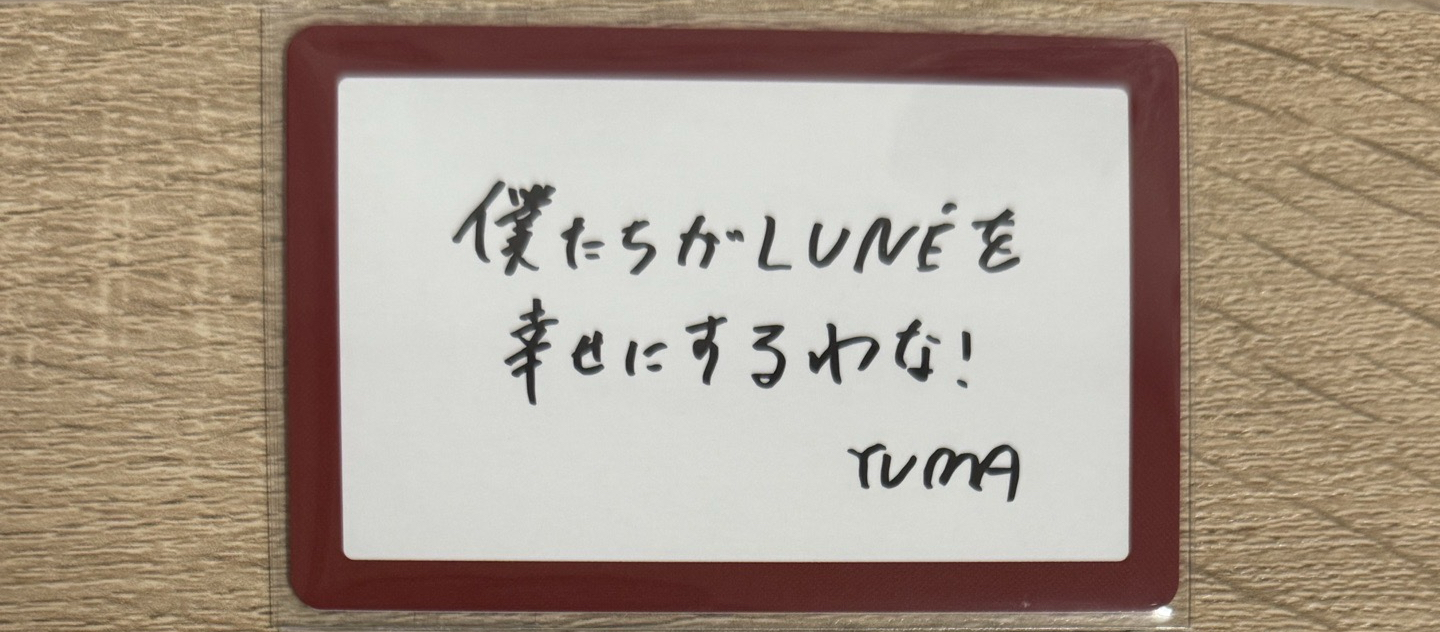 僕たちがLUNÉを
幸せにするわな!
YUMA